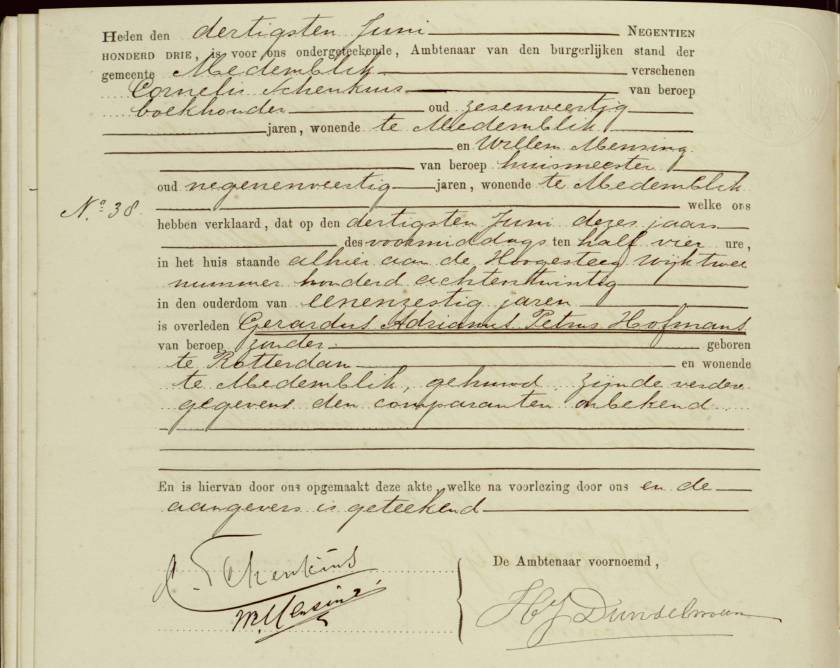 Heden den dertigsten Juni NEGENTIEN
HONDERD DRIE, is voor ons ondergeteekende, Ambtenaar van den burgerlijken stand der
gemeente Medemblik verschenen
Cornelis Schenkius van beroep
boekhouder oud zesenveertig
jaren, wonende te Medemblik
en Willem Mensing
van beroep huismeester
oud negenenveertig jaren, wonende te Medemblik
No. 38. welke ons
hebben verklaard, dat op den dertigsten Juni dezes jaars
des voormiddags ten half vier ure,
in het huis staande alhier aan de Hoogesteeg Wijk twee
nummer honderd achtentwintig
in den ouderdom van eenenzestig jaren
is overleden Gerardus Adrianus Petrus Hofmans
van beroep zonder geboren
te Rotterdam en wonende
te Medemblik, gehuwd zijnde verdere
gegevens den comparanten onbekend
En is hiervan door ons opgemaakt deze akte, welke na voorlezing door ons en de
aangevers is geteekend
De Ambtenaar voornoemd,
C. Schenkius
W. Mensing